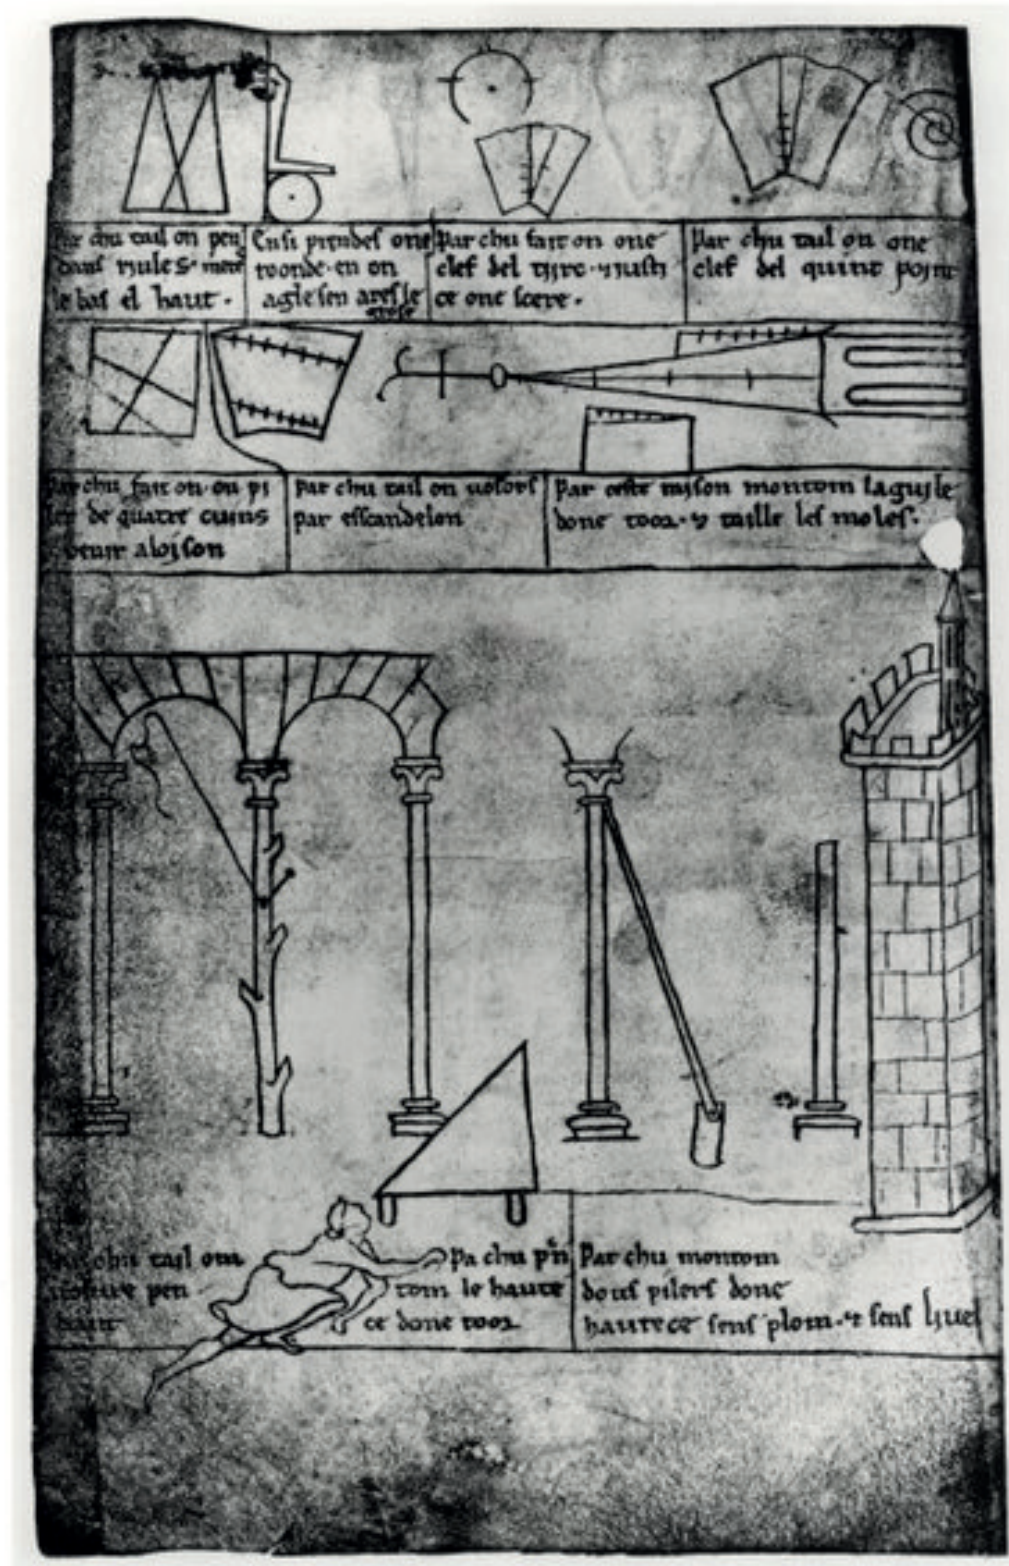 chu tail on pen
riules mete
le bas el haut.
Ensi prendes one
roonde. en on
agle sen ares le
grose
Par chu fait on one
clef del tijrc. ⁊ iusti
ce one scere.
Par chu tail on one
clef del quint point
Par chu fait on. on pi
de quatre cuins
venir aloison
Par chu tail on vosors
par esscandelon
Par ceste raison montom laguile
done toor. ⁊ taille les moles.
chu tail om
pen
Pa chu pn
tom le haute
ce done toor
Par chu montom
dous pilers done
hautece sens plom. ⁊ sens liuel